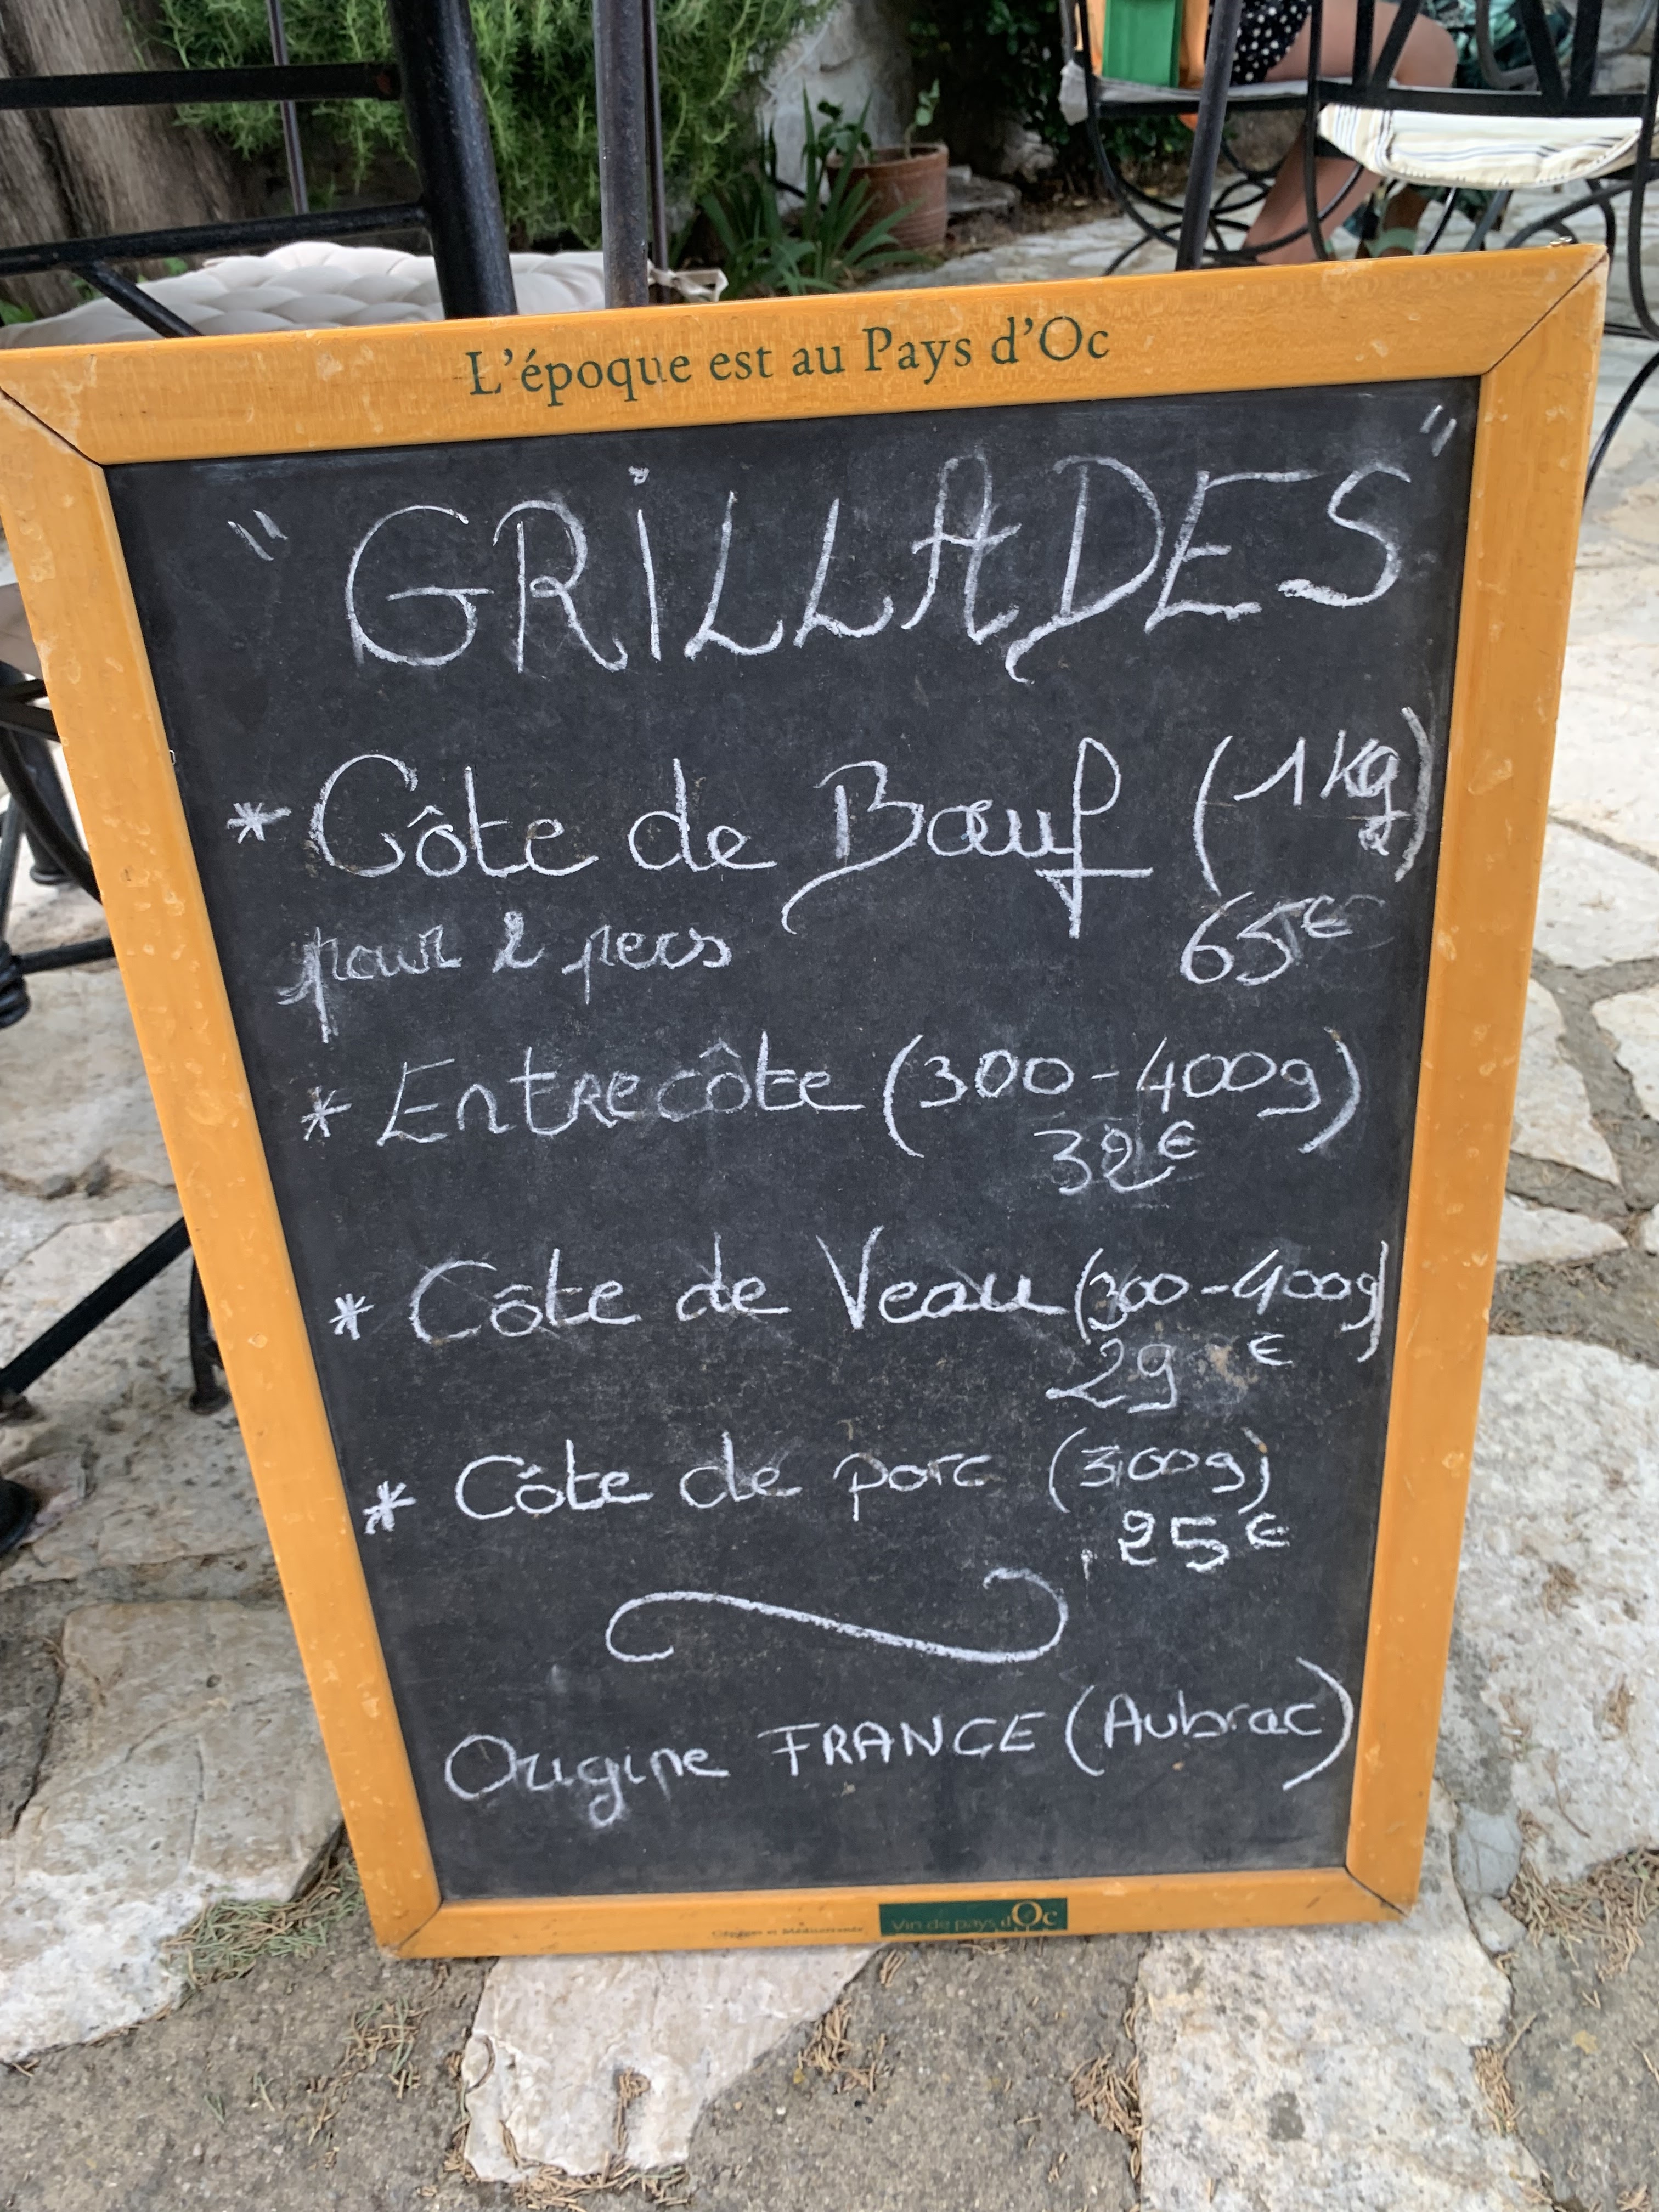 L'époque est au Pays d'Oc
"GRiLLADES"
* Côte de Bœuf (1 kg)
pour 2 pers 65€
* Entrecôte (300-400g)
32€
* Côte de Veau (300-400g)
29 €
* Côte de porc (300g)
25€
Origine FRANCE (Aubrac)
Vin de pays d'Oc